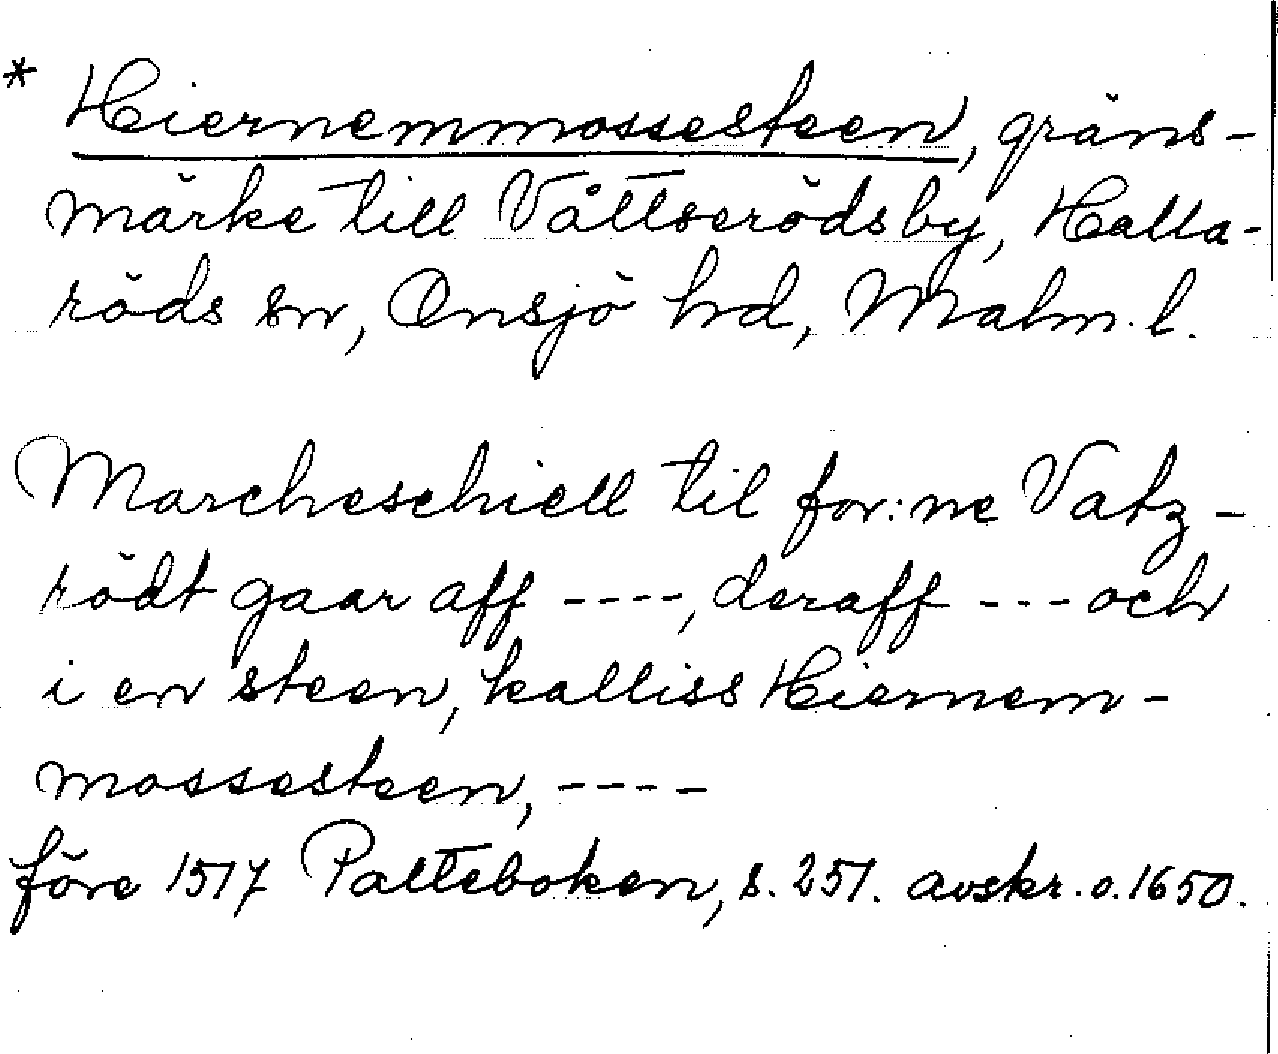 * Hiernemmossesteen, gräns-
märke till Våttserödsby, Halla-
röds sn, Onsjö hd, Malm. l.
Marcheschiell til for:ne Vatz-
rödt gaar aff ----, deraff --- och
i en steen, kalliss Hiernem-
mossesteen, ----
före 1517 Palteboken, s. 251. avskr. o. 1650.